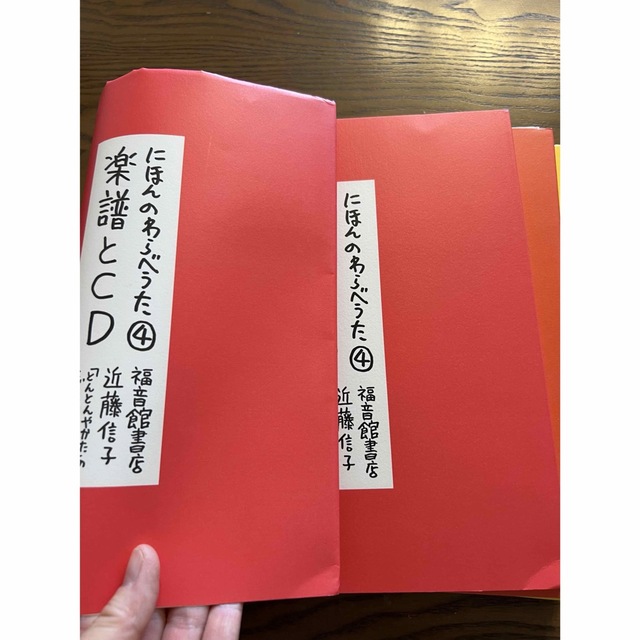 にほんのわらべうた④
楽譜とCD
福音館書店
近藤信子
「どんどんやかたの
にほんのわらべうた④
福音館書店
近藤信子